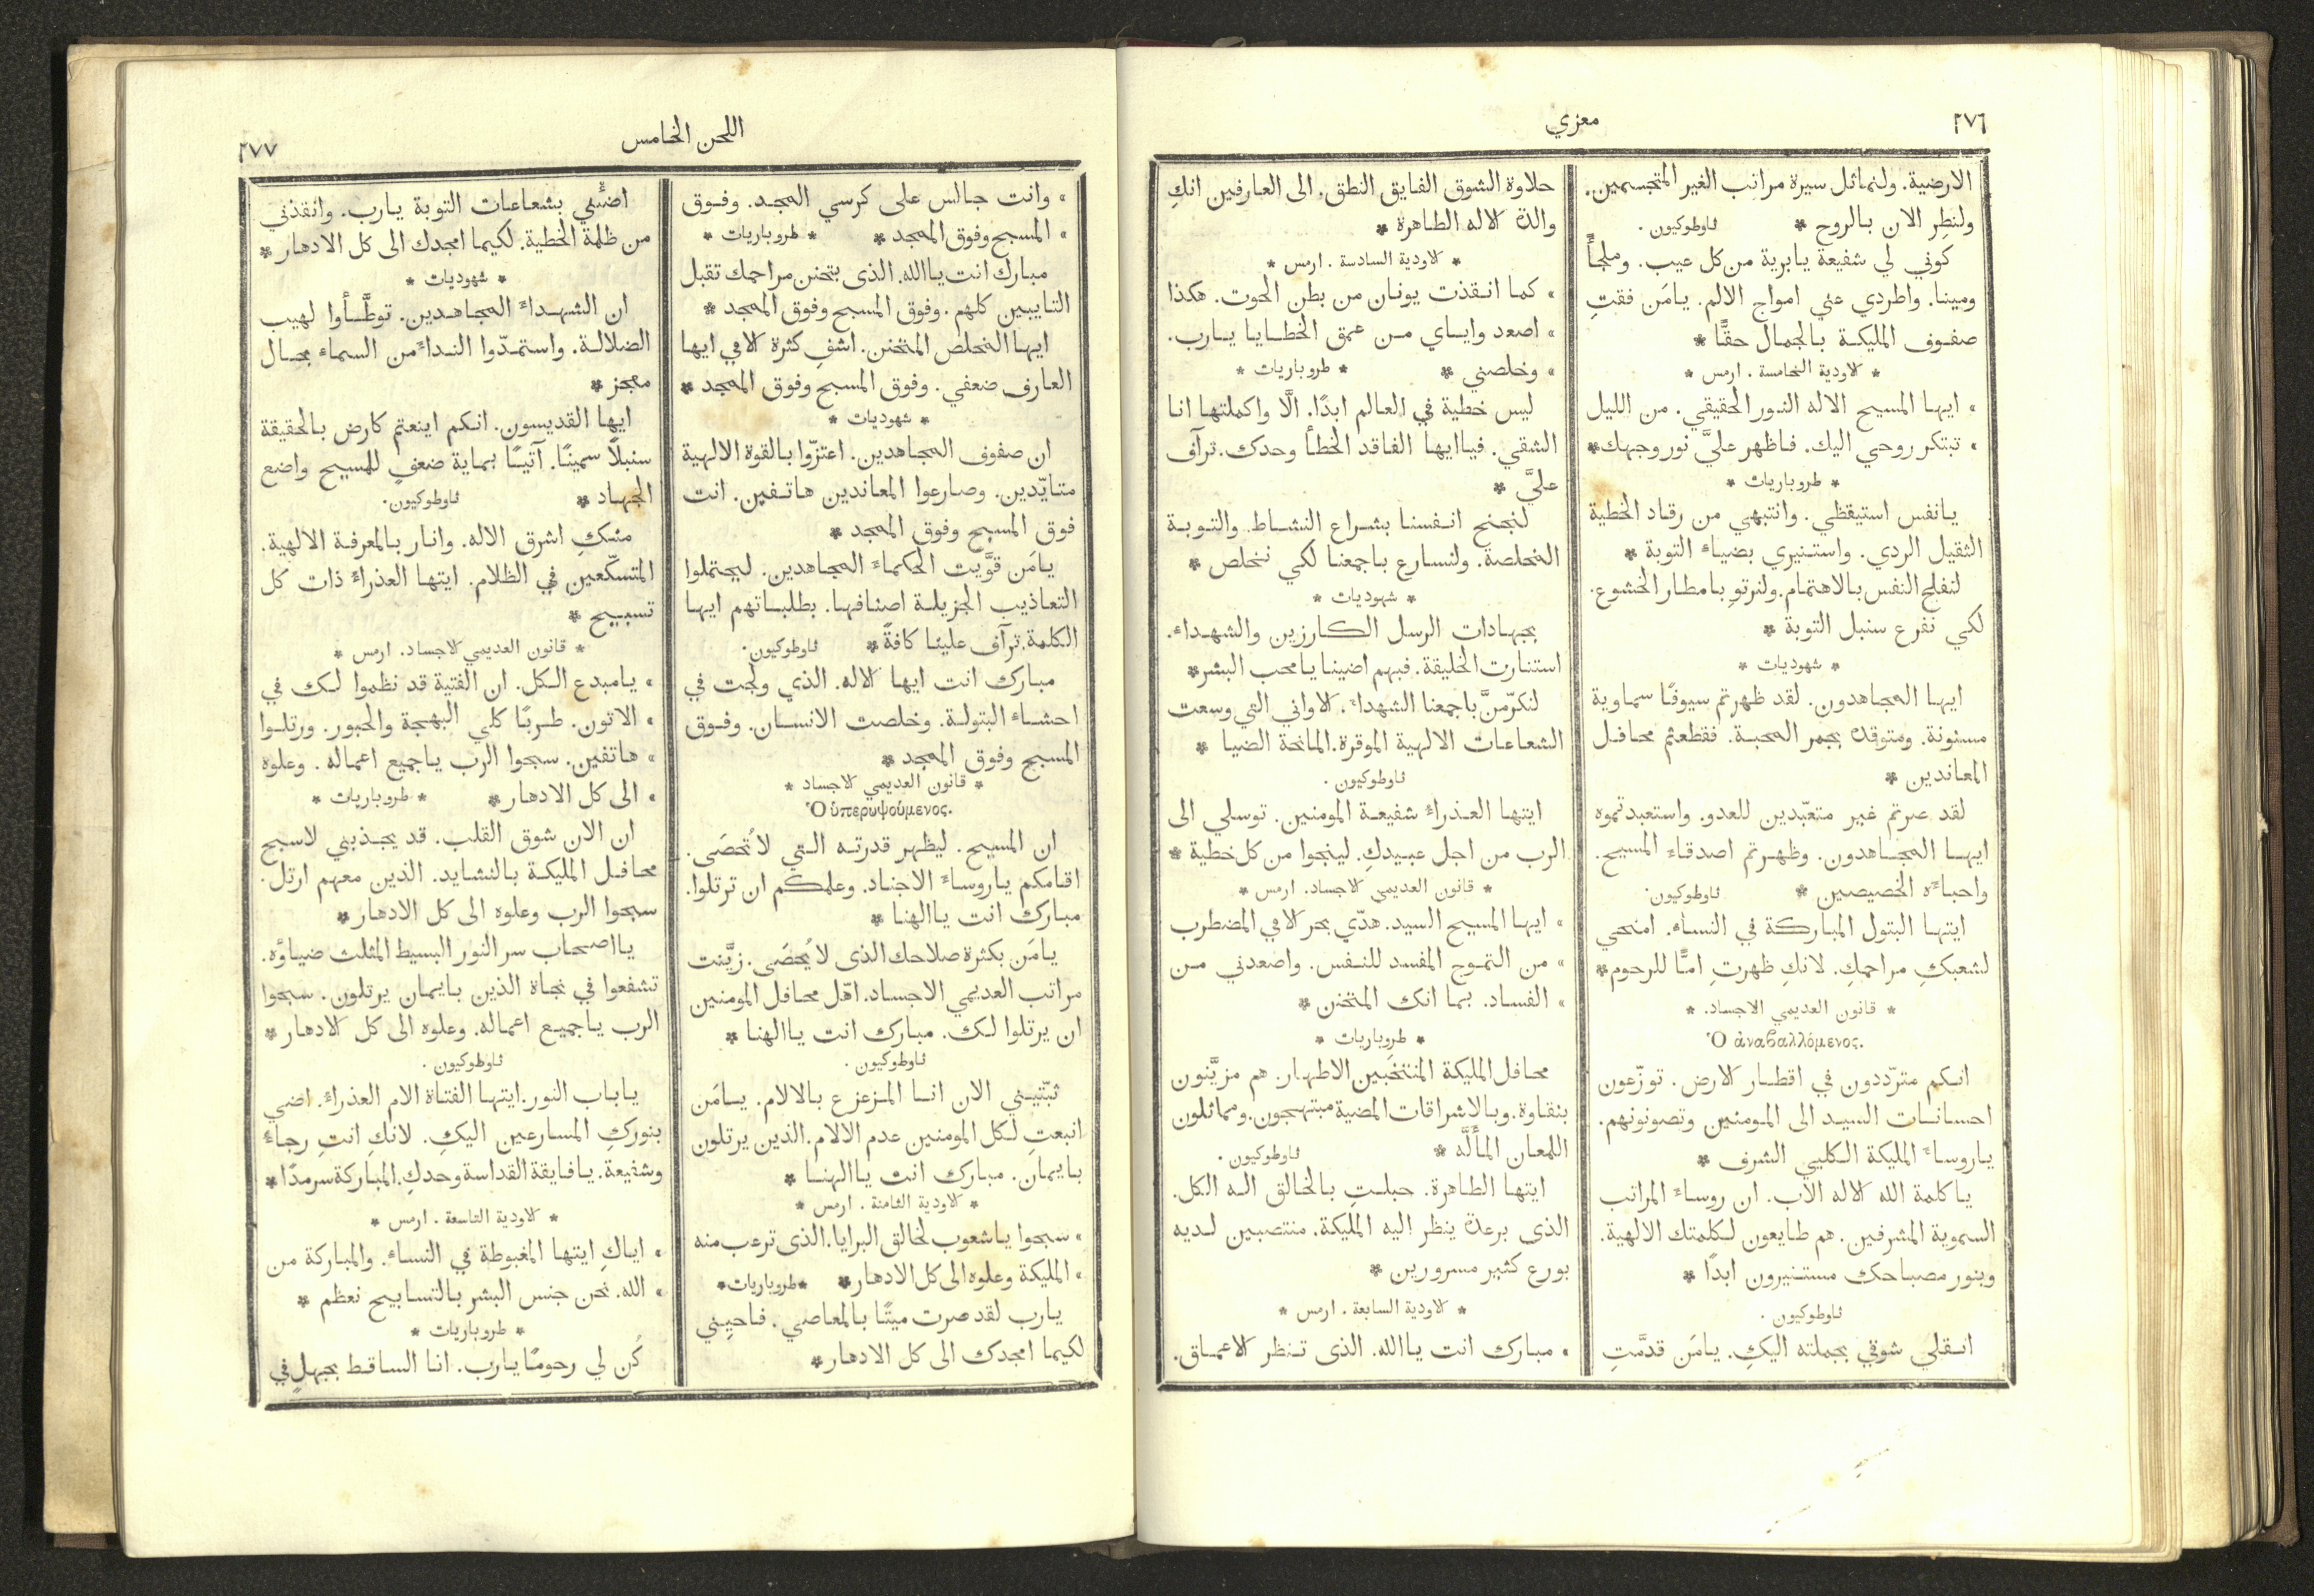 ٢٧٦
معزي
الارضية. ولنماثل سيرة مراتب الغير المتجسمين.
ولنطِر الان بالروح * ثاوطوكيون.
كوني لي شفيعة يابرية من كل عيب. وملجأً
ومينا. واطردي عني امواج الالم. يامَن فقتِ
صفوف المليكة بالجمال حقًّا *
* الاودية الخامسة. ارمس *
» ايها المسيح الاله النور الحقيقي. من الليل
» تبتكر روحي اليك. فاظهر عليَّ نور وجهك *
* طروباريات *
يانفس استيقظي. وانتبهي من رقاد الخطية
الثقيل الردي. واستنيري بضياء التوبة *
لنفلح النفس بالاهتمام. ولنرتوِ بامطار الخشوع.
لكي نفرع سنبل التوبة *
* شهوديات *
ايها المجاهدون. لقد ظهرتم سيوفًا سماوية
مسنونة. ومتوقدة بجمر المحبة. فقطعتم محافل
المعاندين *
لقد صرتم غير متعبّدين للعدو. واستعبدتموه
ايها المجاهدون. وظهرتم اصدقاء المسيح.
واحباءه الخصيصين * ثاوطوكيون.
ايتها البتول المباركة في النساء. امنحي
لشعبكِ مراحمكِ. لانكِ ظهرتِ امًّا للرحوم *
* قانون العديمي الاجساد. *
Ὁ ἀναβαλλόμενος.
انكم متردّدون في اقطار الارض. توزّعون
احسانات السيد الى المومنين وتصونونهم.
ياروساء المليكة الكليي الشرف *
ياكلمة الله الاله الآب. ان روساء المراتب
السموية المشرفين. هم طايعون لكلمتك الالهية.
وبنور مصباحك مستنيرون ابدًا *
ثاوطوكيون.
انقلي شوقي بجملته اليكِ. يامَن قدَّمتِ
حلاوة الشوق الفايق النطق. الى العارفين انكِ
والدة الاله الطاهرة *
* الاودية السادسة. ارمس *
» كما انقذت يونان من بطن الحوت. هكذا
» اصعد واياي من عمق الخطايا يارب.
» وخلصني * * طروباريات *
ليس خطية في العالم ابدًا. الَّا واكملتها انا
الشقي. فياايها الفاقد الخطأ وحدك. ترآف
عليَّ *
لنجنح انفسنا بشراع النشاط. والتوبة
المخلصة. ولنسارع باجمعنا لكي نخلص *
* شهوديات *
بجهادات الرسل الكارزين والشهداء.
استنارت الخليقة. فبهم اضينا يامحب البشر *
لنكرّمنَّ باجمعنا الشهداء. الاواني التي وسعت
الشعاعات الالهية الموقرة. المانحة الضيا *
ثاوطوكيون.
ايتها العذراء شفيعة المومنين. توسلي الى
الرب من اجل عبيدكِ. لينجوا من كل خطية *
* قانون العديمي الاجساد. ارمس *
» ايها المسيح السيد. هدّي بحر الامي المضطرب
» من التموج المفسد للنفس. واصعدني من
» الفساد. بما انك المتحنن *
* طروباريات *
محافل المليكة المنتخَبين الاطهار. هم مزيَّنون
بنقاوة. وبالاشراقات المضية مبتهجون. ومماثلون
اللمعان المألَّه * ثاوطوكيون.
ايتها الطاهرة. حبلتِ بالخالق اله الكل.
الذى برعدة ينظر اليه المليكة. منتصبين لديه
بورع كثير مسرورين *
* الاودية السابعة. ارمس *
» مبارك انت ياالله. الذى تنظر الاعماق.
اللحن الخامس
٢٧٧
» وانت جالس على كرسي المجد. وفوق
» المسبح وفوق الممجد * * طروباريات *
مبارك انت ياالله. الذى بتحنن مراحمك تقبل
التايبين كلهم. وفوق المسبح وفوق الممجد *
ايها المخلص المتحنن. اشفِ كثرة الامي ايها
العارف ضعفي. وفوق المسبح وفوق الممجد *
* شهوديات *
ان صفوف المجاهدين. اعتزّوا بالقوة الالهية
متايّدين. وصارعوا المعاندين هاتفين. انت
فوق المسبح وفوق الممجد *
يامَن قوَّيت الحكماء المجاهدين. ليحتملوا
التعاذيب الجزيلة اصنافها. بطلباتهم ايها
الكلمة. ترآف علينا كافةً * ثاوطوكيون.
مبارك انت ايها الاله. الذي ولجت في
احشاء البتولة. وخلصت الانسان. وفوق
المسبح وفوق الممجد *
* قانون العديمي الاجساد *
Ὁ ὑπερυψούμενος.
ان المسيح. ليظهر قدرته التي لاتُحصَى.
اقامكم ياروساء الاجناد. وعلمكم ان ترتلوا.
مبارك انت ياالهنا *
يامَن بكثرة صلاحك الذى لايُحصَى. زيَّنت
مراتب العديمي الاجساد. اهّل محافل المومنين
ان يرتلوا لك. مبارك انت ياالهنا *
ثاوطوكيون.
ثبّتيني الان انا المزعزع بالالام. يامَن
انبعتِ لكل المومنين عدم الالام. الذين يرتلون
بايمان. مبارك انت ياالهنا *
* الاودية الثامنة. ارمس *
» سبحوا ياشعوب لخالق البرايا. الذى ترعب منه
» المليكة وعلوه الى كل الادهار * * طروباريات *
يارب لقد صرت ميتًا بالمعاصي. فاحيني
لكيما امجدك الى كل الادهار *
اضئني بشعاعات التوبة يارب. وانقذني
من ظلمة الخطية. لكيما امجدك الى كل الادهار *
* شهوديات *
ان الشهداء المجاهدين. توطَّأوا لهيب
الضلالة. واستمدّوا النداء من السماء بحال
معجز *
ايها القديسون. انكم اينعتم كارض بالحقيقة
سنبلاً سمينًا. آتيًا بماية ضعفٍ للمسيح واضع
الجهاد * ثاوطوكيون.
منكِ اشرق الاله. وانار بالمعرفة الالهية.
المتسكّعين في الظلام. ايتها العذراء ذات كل
تسبيح *
* قانون العديمي الاجساد. ارمس *
» يامبدع الكل. ان الفتية قد نظموا لك في
» الاتون. طربًا كلي البهجة والحبور. ورتلوا
» هاتفين. سبحوا الرب ياجميع اعماله. وعلوه
» الى كل الادهار * * طروباريات *
ان الان شوق القلب. قد يجذبني لاسبح
محافل المليكة بالنشايد. الذين معهم ارتل.
سبحوا الرب وعلوه الى كل الادهار *
يااصحاب سر النور البسيط المثلث ضياؤه.
تشفعوا في نجاة الذين بايمان يرتلون. سبحوا
الرب ياجميع اعماله. وعلوه الى كل الادهار *
ثاوطوكيون.
ياباب النور. ايتها الفتاة الام العذراء. اضي
بنوركِ المسارعين اليكِ. لانكِ انتِ رجاء
وشفيعة. يافايقة القداسة وحدكِ. المباركة سرمدًا *
* الاودية التاسعة. ارمس *
» اياكِ ايتها المغبوطة في النساء. والمباركة من
» الله. نحن جنس البشر بالتسابيح نعظم *
* طروباريات *
كُن لي رحومًا يارب. انا الساقط بجهلٍ في